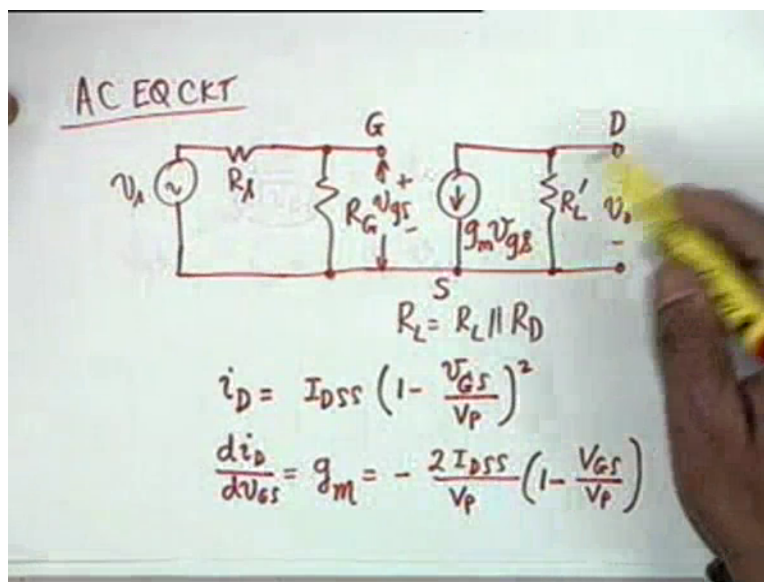 AC EQ CKT
G D
v_s R_s R_G + v_gs - g_m v_gs R_L' v_o -
S
R_L = R_L || R_D
i_D = I_DSS (1 - v_GS/V_P)^2
di_D/dv_GS = g_m = - 2 I_DSS/V_P (1 - V_GS/V_P)